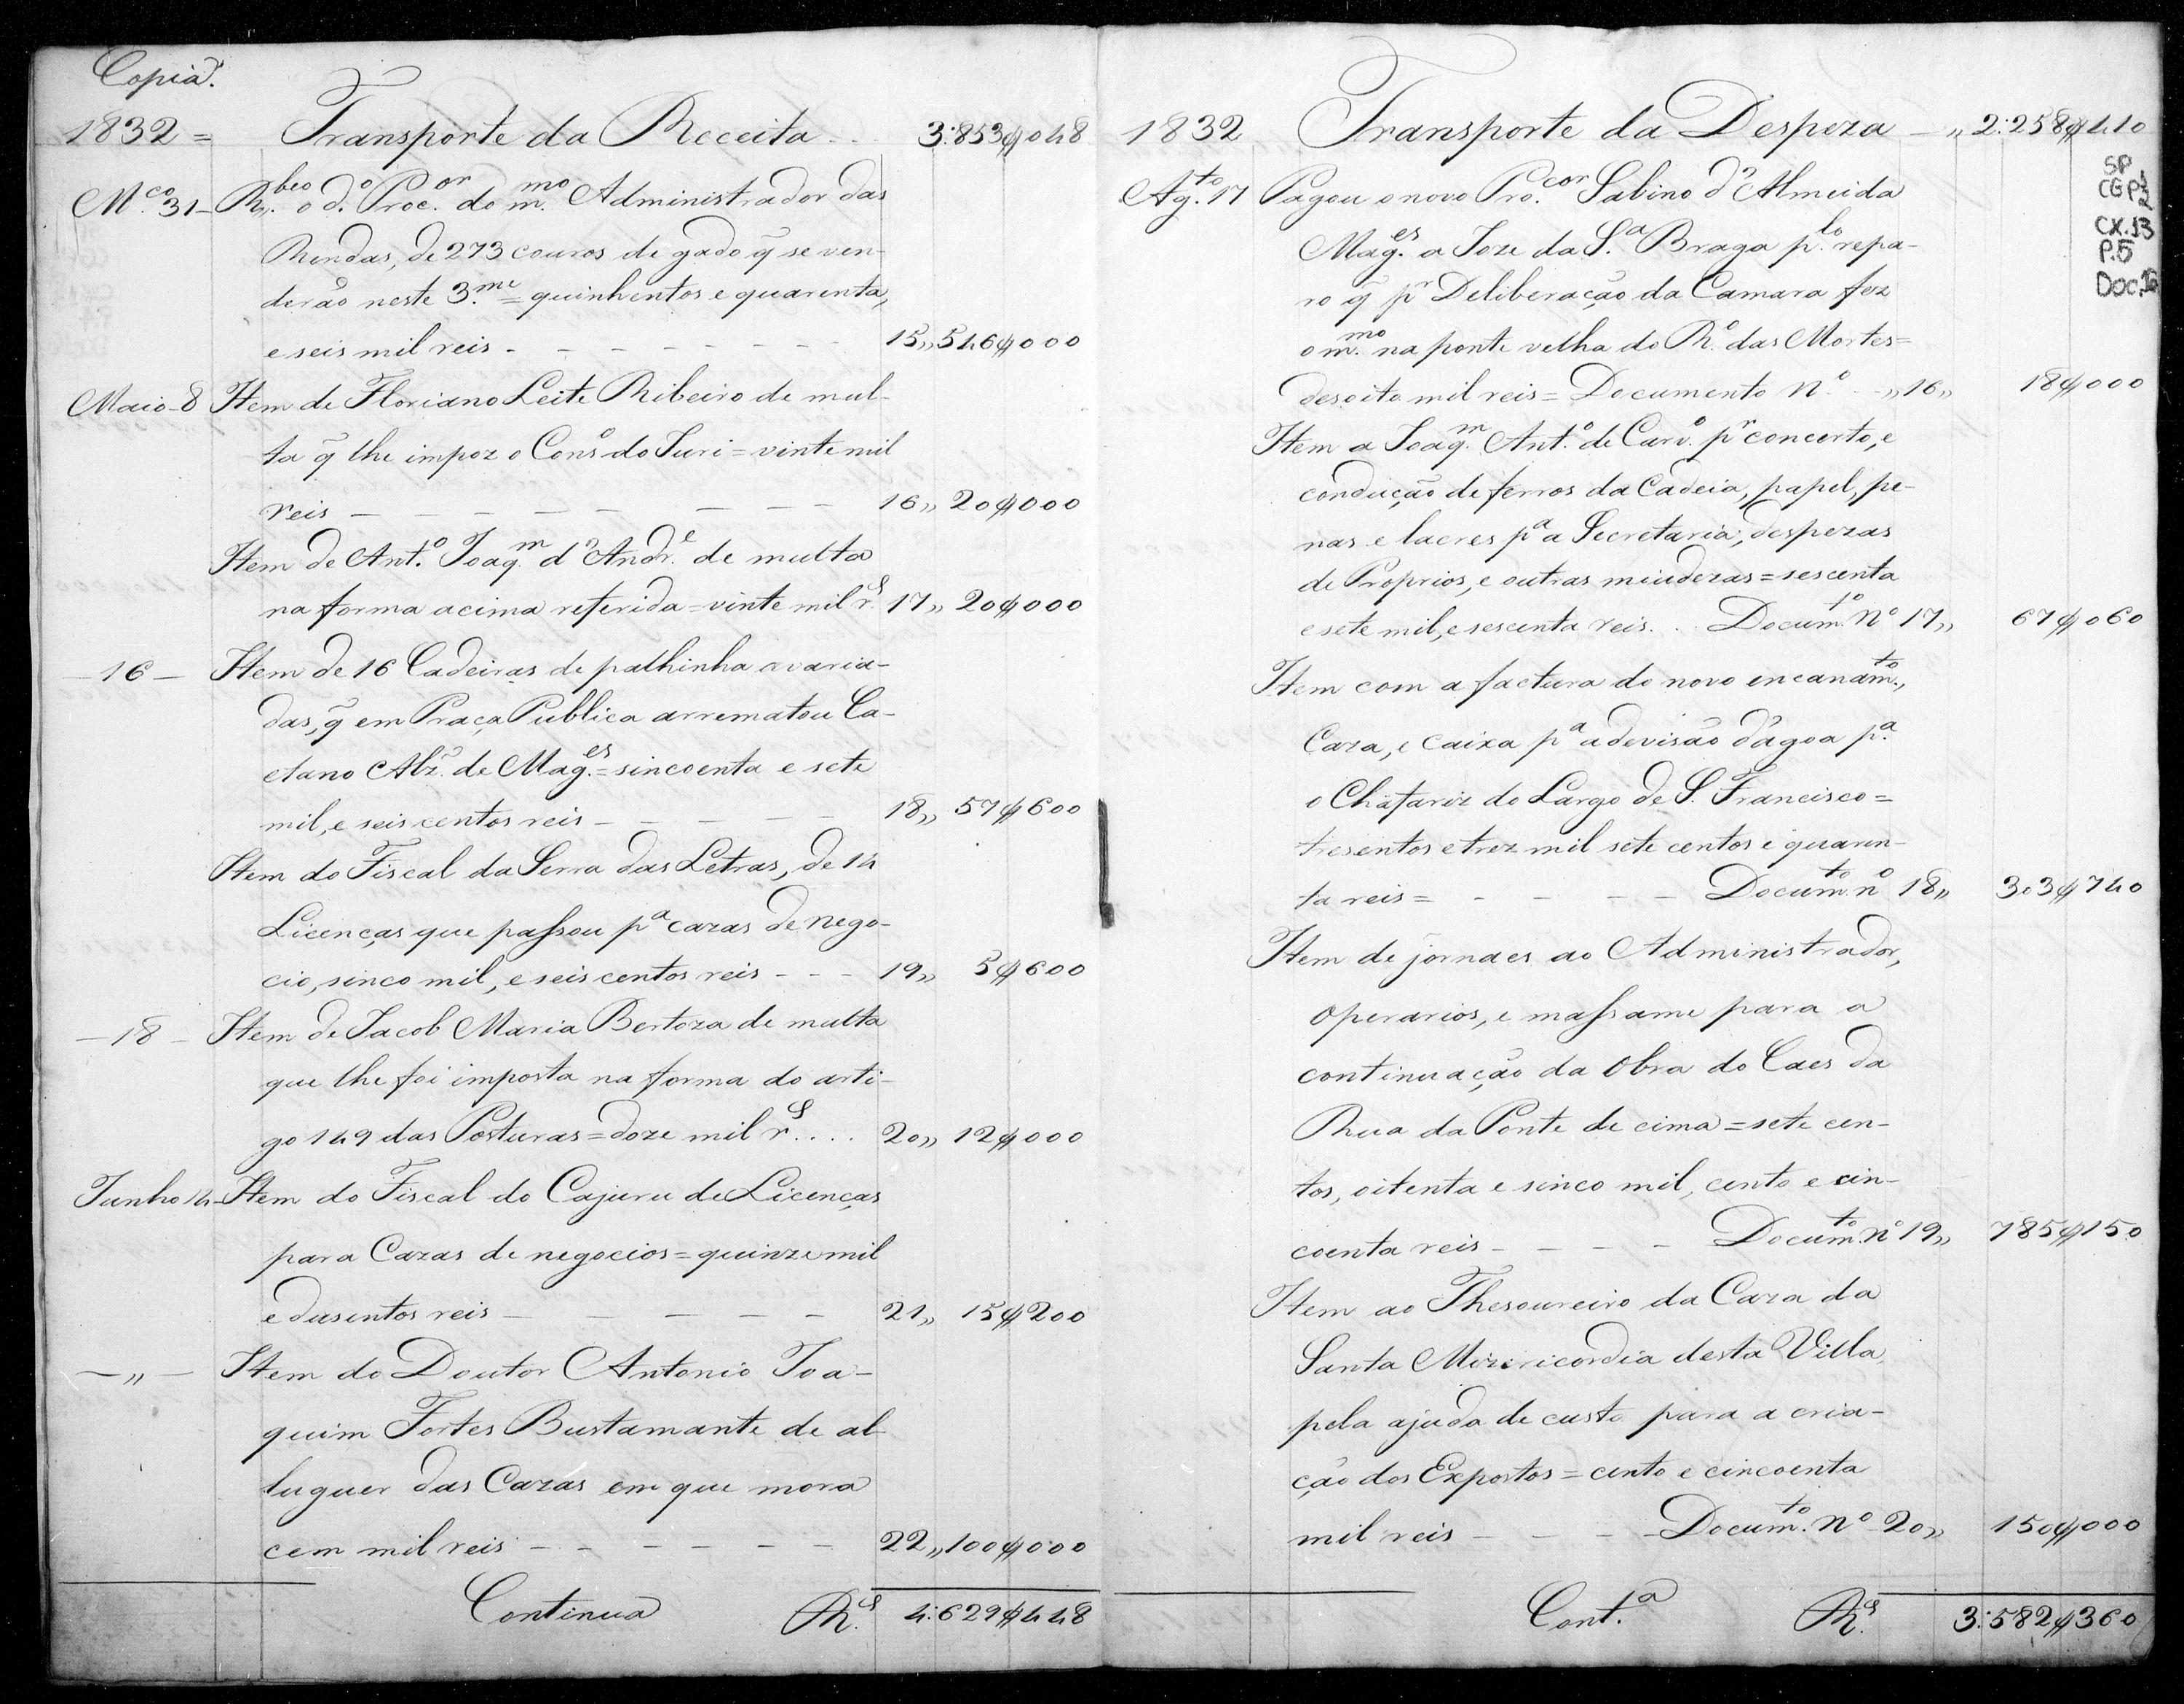 Copia.
1832 = Transporte da Receita .. 3:853$048
M.co 31 - R.beo o d.o Proc.or do m.mo Administrador das
Rendas, de 273 couros de gado q̃ se ven-
derão neste 3.me = quinhentos e quarenta,
e seis mil reis - - - - - - - 15,, 546$000
Maio 8 Item de Floriano Leite Ribeiro de mul-
ta q̃ lhe impoz o Cons.o do Juri = vinte mil
reis - - - - - - - - 16,, 20$000
Item de Ant.o Joaq.m d'Andr.e de multa
na forma acima referida = vinte mil r.s 17,, 20$000
- 16 - Item de 16 Cadeiras de palhinha avaria-
das, q̃ em Praça Publica arrematou Ca-
etano Alz̃. de Mag.es = sincoenta e sete
mil, e seis centos reis - - - - - 18,, 57$600
Item do Fiscal da Serra das Letras, de 14
Licenças que passou p.a cazas de nego-
cio, sinco mil, e seis centos reis - - - 19,, 5$600
- 18 - Item de Jacob Maria Bertoza de multa
que lhe foi imposta na forma do arti-
go 149 das Posturas = doze mil r.s .... 20,, 12$000
Junho 14 - Item do Fiscal do Cajuru de Licenças
para Cazas de negocios = quinze mil
e dusentos reis - - - - - - 21,, 15$200
- ,, - Item do Doutor Antonio Joa-
quim Fortes Bustamante de al-
luguer das Cazas em que mora
cem mil reis - - - - - - 22,, 100$000
Continua R.s 4:629$448
1832 Transporte da Despeza - ,, 2:258$410
SP
CGP 1/2
CX.13
P.5
Doc.16
Ag.to 17 Pagou o novo Pro.cor Sabino d'Almeida
Mag.es a Joze da S.a Braga p.lo repa-
ro q̃ p.r Deliberação da Camara fez
o m.mo na ponte velha do R.o das Mortes =
desoito mil reis = Documento N.o - ,, 16,, 18$000
Item a Joaq.m Ant.o de Carv.o p.r concerto, e
condução de ferros da Cadeia, papel, pe-
nas e lacres p.a a Secretaria, despezas
de Proprios, e outras miudezas = sescenta
e sete mil, e sescenta reis. .. Docum.to N.o 17,, 67$060
Item com a factura do novo encanam.to,
Caza, e caixa p.a a devisão d'agoa p.a
o Chafariz do Largo de S. Francisco =
tresentos e trez mil sete centos e quaren-
ta reis = - - - - Docum.to n.o 18,, 303$740
Item de jornaes ao Administrador,
operarios, e massame para a
continuação da Obra do Caes da
Rua da Ponte de cima = sete cen-
tos, oitenta e sinco mil, cento e cin-
coenta reis - - - - Docum.to n.o 19,, 785$150
Item ao Thesoureiro da Caza da
Santa Mizericordia desta Villa,
pela ajuda de custo para a cria-
ção dos Expostos = cento e cincoenta
mil reis - - - - Docum.to N.o 20,, 150$000
Cont.a R.s 3:582$360